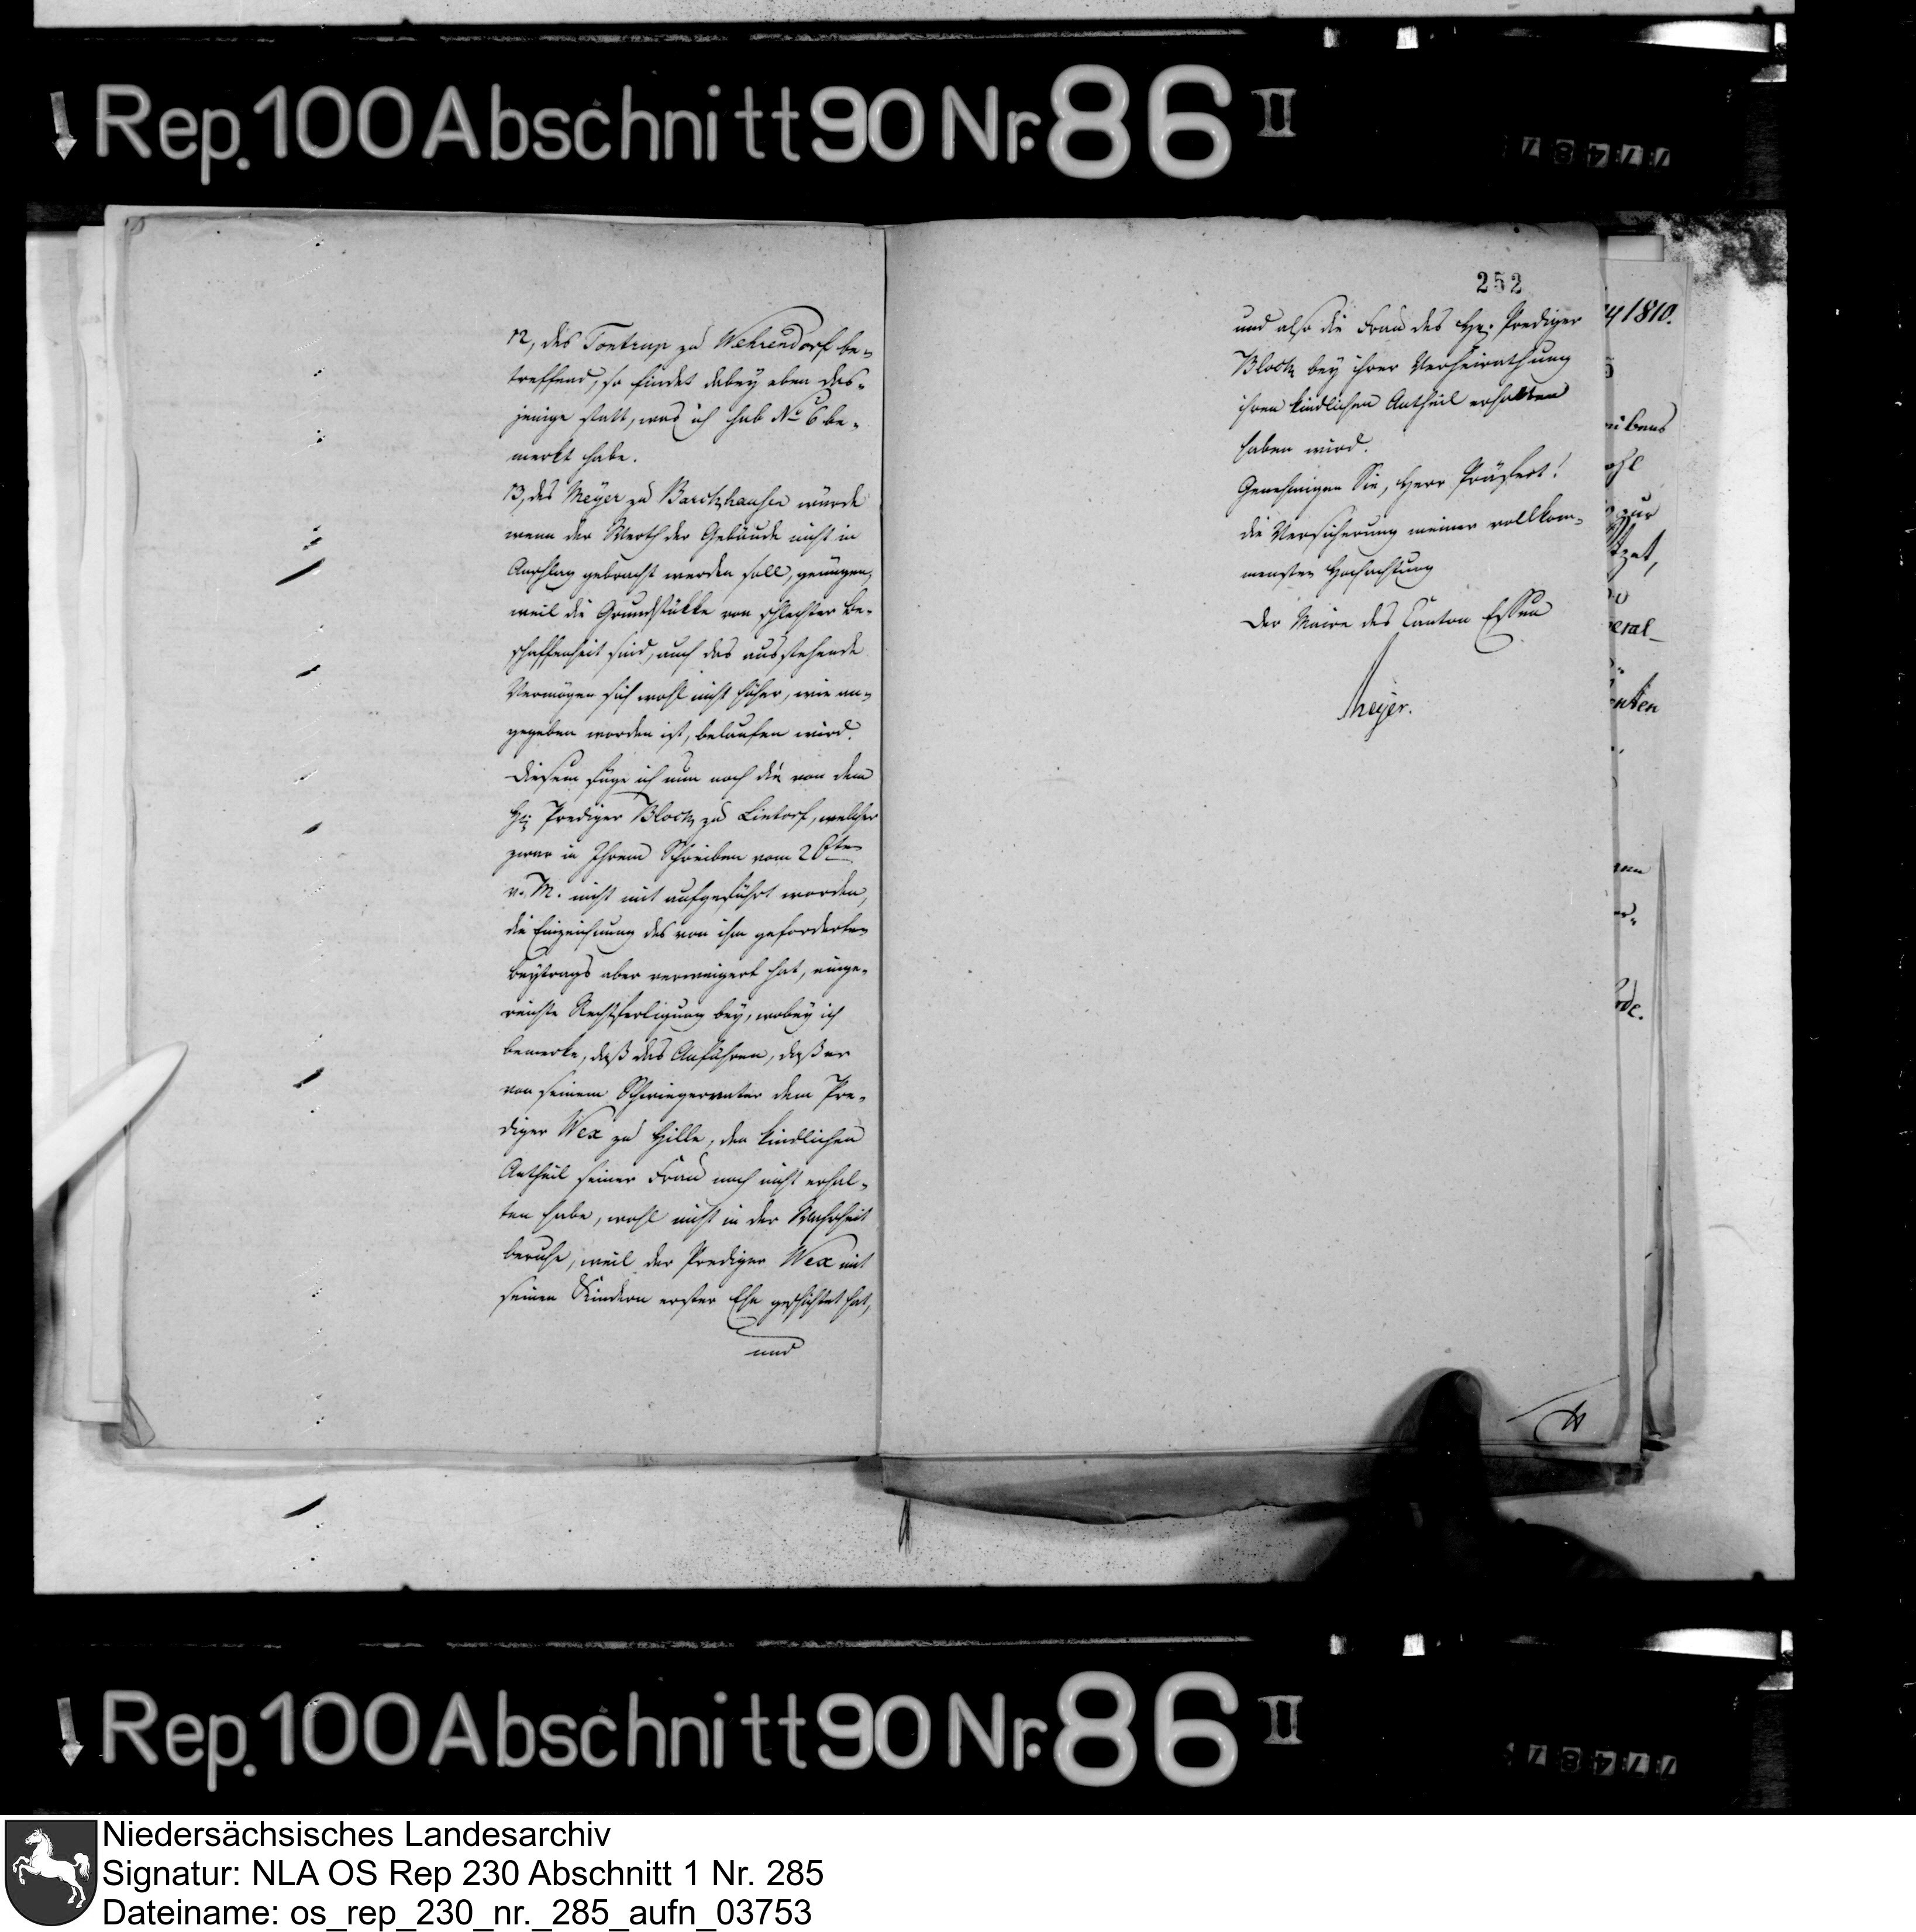 Rep. 100 Abschnitt 90 Nr. 86 II
12, des Tontrup zu Wehrendorf be-
treffend, so findet dabey eben das-
jenige statt, was ich sub No 6 be-
merkt habe.
13, des Meyer zu Barckhausen würde
wenn der Werth der Gebäude nicht in
Anschlag gebracht werden soll, genügen,
weil die Grundstükke von schlechter Be-
schaffenheit sind, auch das ausstehende
Vermögen sich wohl nicht höher, wie an-
gegeben worden ist, belaufen wird.
Diesem füge ich nun noch die von dem
Hn Prediger Block zu Lintorf, welcher
zwar in Ihrem Schreiben vom 26ten
v. M. nicht mit aufgeführt worden,
die Einzeichnung des von ihm geforderten
Beytrags aber verweigert hat, einge-
reichte Rechtfertigung bey, wobey ich
bemerke, daß das Anführen, daß er
von seinem Schwiegervater dem Pre-
diger Wex zu Hille, den kindlichen
Antheil seiner Frau noch nicht erhal-
ten habe, wohl nicht in der Wahrheit
beruhe, weil der Prediger Wex mit
seinen Kindern erster Ehe geschichtet hat,
und
252
und also die Frau des Hn. Prediger
Block bey ihrer Verheirathung
ihren kindlichen Antheil erhalten
haben wird.
Genehmigen Sie, Herr Präfect!
die Versicherung meiner vollkom-
mensten Hochachtung
Der Maire des Canton Essen
Meyer.
1810.
Rep. 100 Abschnitt 90 Nr. 86 II
Niedersächsisches Landesarchiv
Signatur: NLA OS Rep 230 Abschnitt 1 Nr. 285
Dateiname: os_rep_230_nr._285_aufn_03753